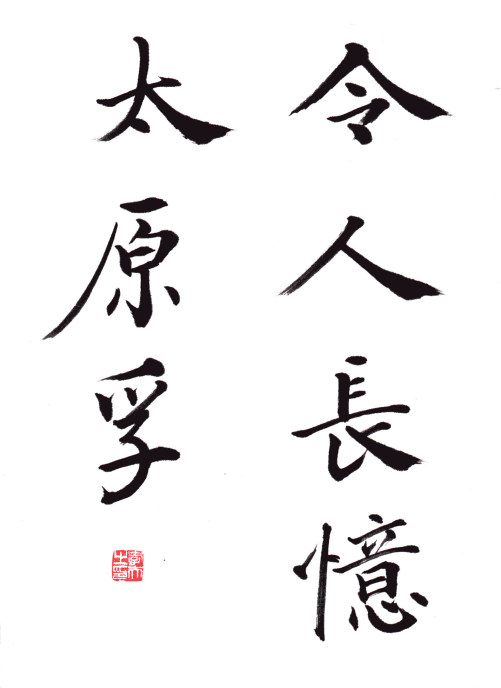 令人長憶
太原孚